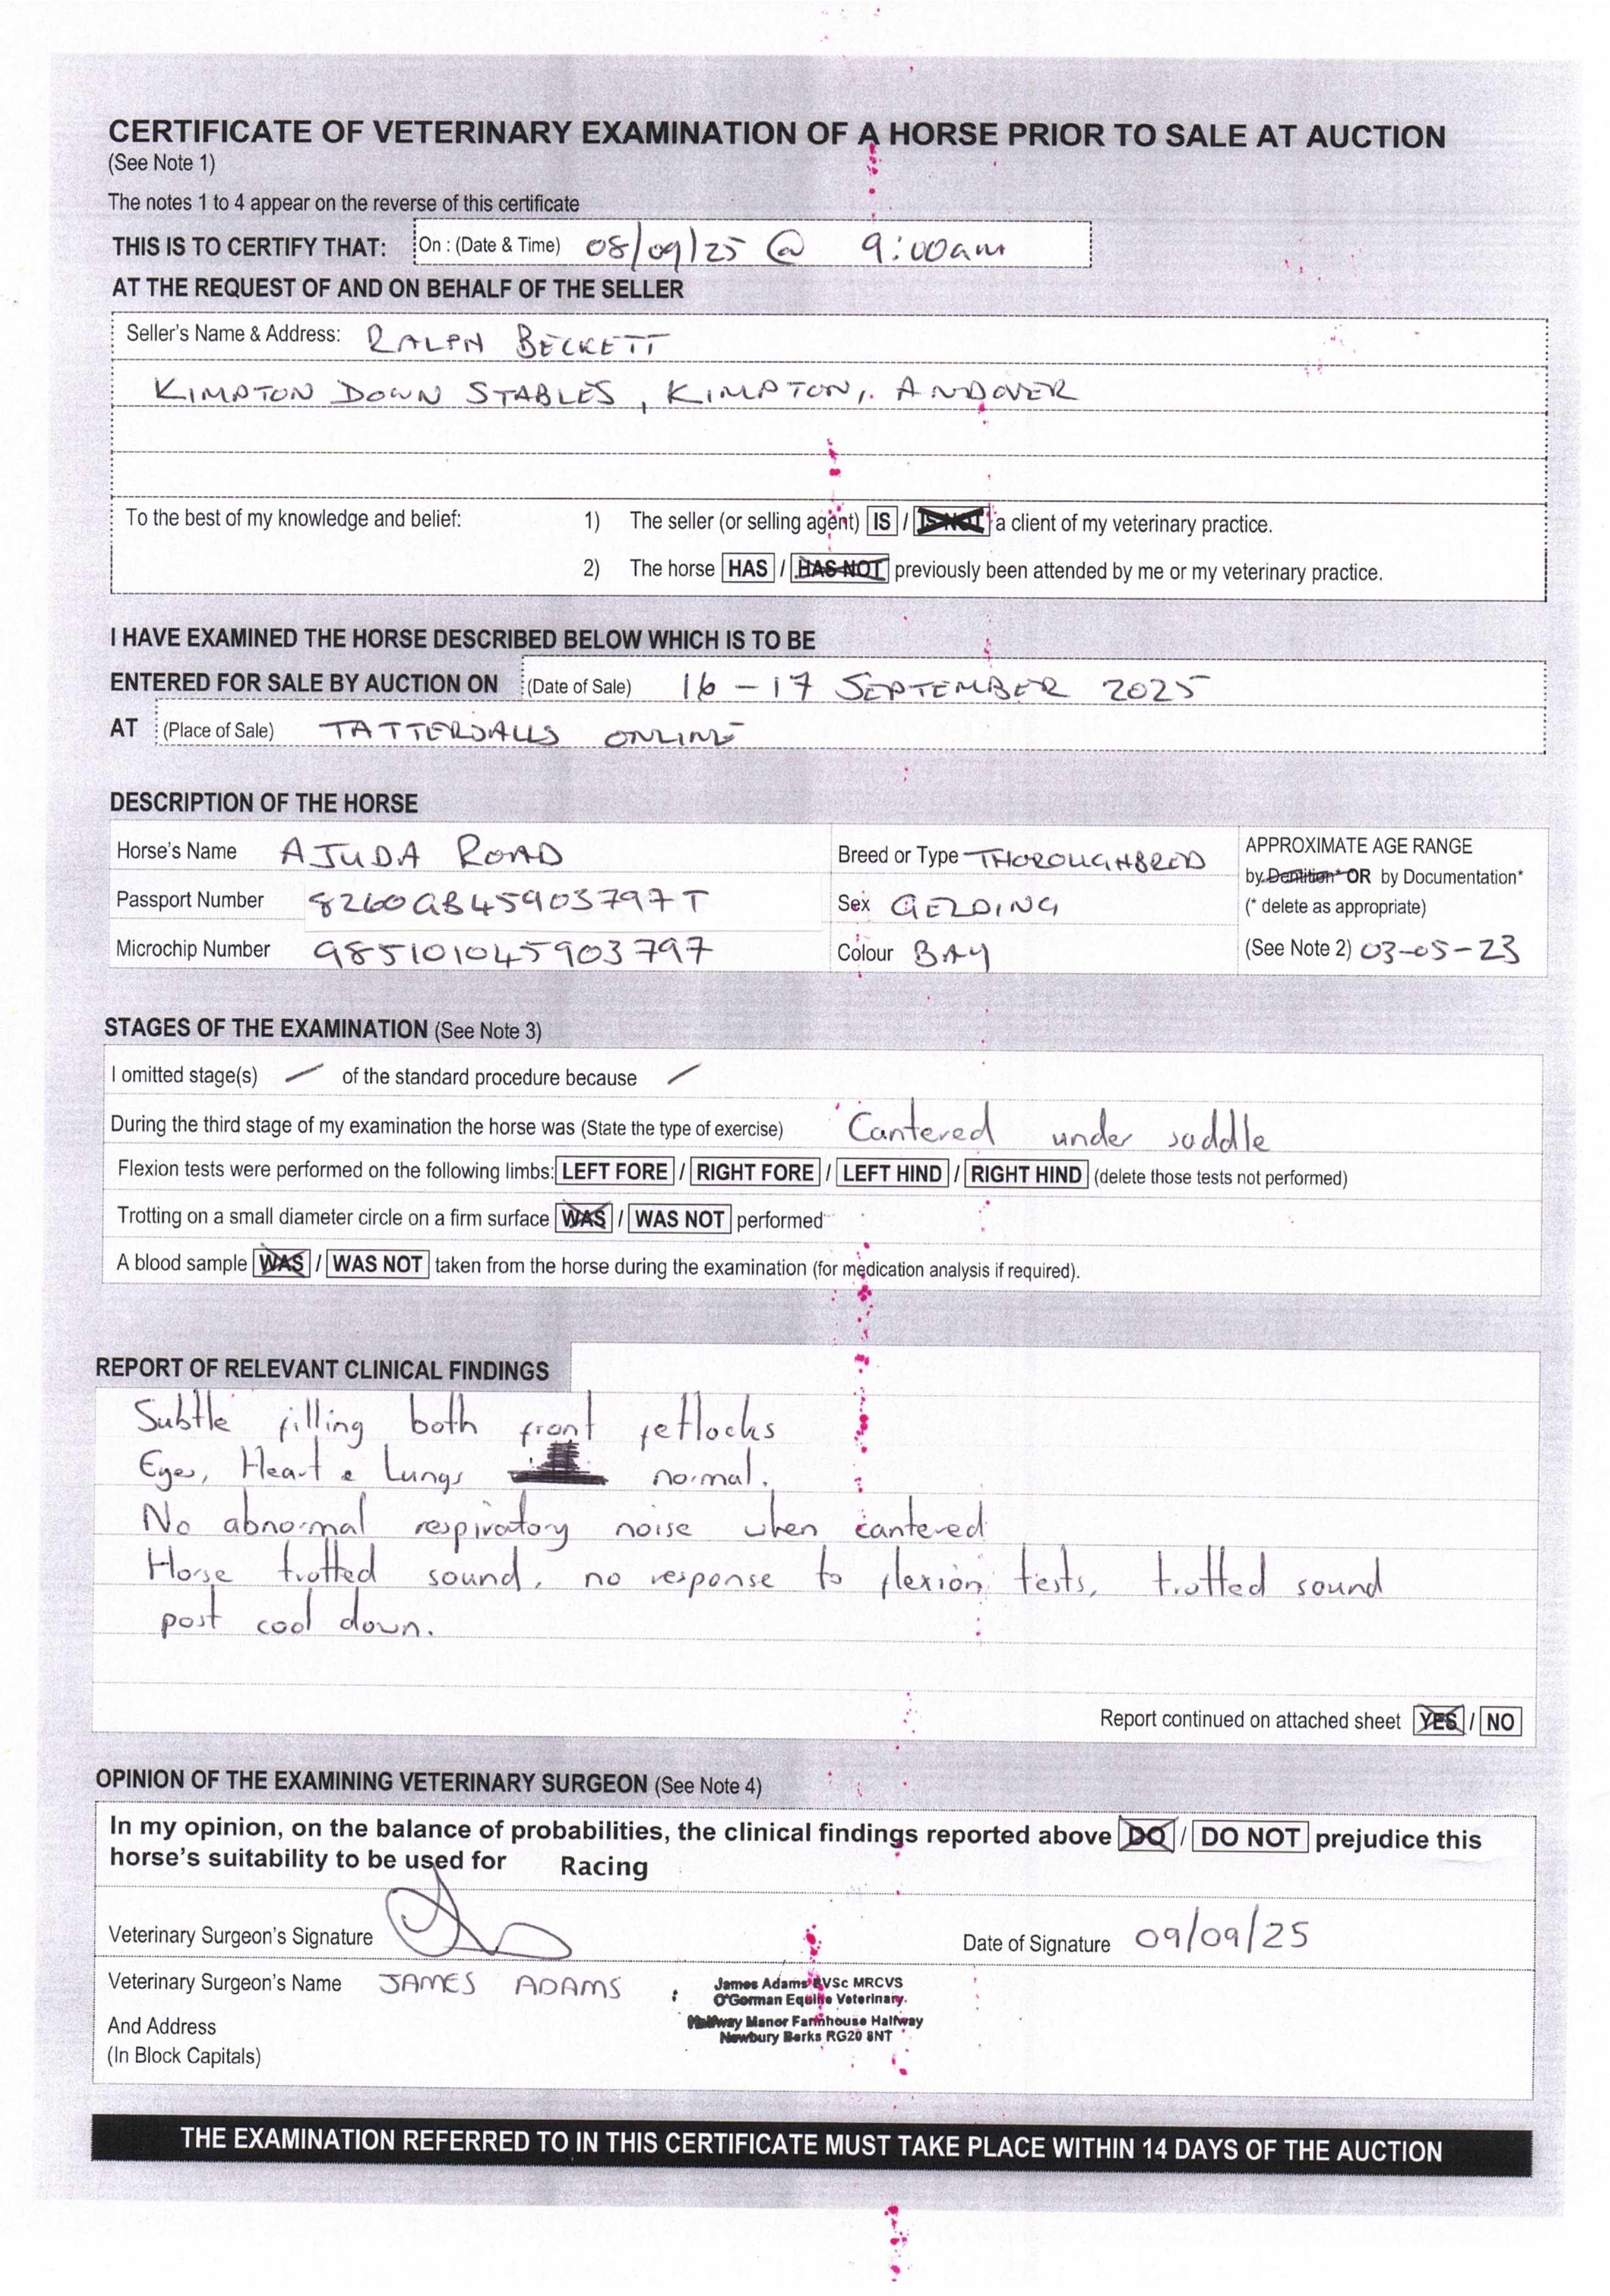 CERTIFICATE OF VETERINARY EXAMINATION OF A HORSE PRIOR TO SALE AT AUCTION
(See Note 1)
The notes 1 to 4 appear on the reverse of this certificate
THIS IS TO CERTIFY THAT: On : (Date & Time) 08/09/25 @ 9:00am
AT THE REQUEST OF AND ON BEHALF OF THE SELLER
Seller's Name & Address: RALPH BECKETT
KIMPTON DOWN STABLES, KIMPTON, ANDOVER
To the best of my knowledge and belief: 1) The seller (or selling agent) IS / IS NOT a client of my veterinary practice.
2) The horse HAS / HAS NOT previously been attended by me or my veterinary practice.
I HAVE EXAMINED THE HORSE DESCRIBED BELOW WHICH IS TO BE
ENTERED FOR SALE BY AUCTION ON (Date of Sale) 16 - 17 SEPTEMBER 2025
AT (Place of Sale) TATTERSALLS ONLINE
DESCRIPTION OF THE HORSE
Horse's Name AJUDA ROAD Breed or Type THOROUGHBRED APPROXIMATE AGE RANGE
by Dentition* OR by Documentation*
Passport Number 8260GB45903797T Sex GELDING (* delete as appropriate)
Microchip Number 985101045903797 Colour BAY (See Note 2) 03-05-23
STAGES OF THE EXAMINATION (See Note 3)
I omitted stage(s) / of the standard procedure because /
During the third stage of my examination the horse was (State the type of exercise) Cantered under saddle
Flexion tests were performed on the following limbs: LEFT FORE / RIGHT FORE / LEFT HIND / RIGHT HIND (delete those tests not performed)
Trotting on a small diameter circle on a firm surface WAS / WAS NOT performed
A blood sample WAS / WAS NOT taken from the horse during the examination (for medication analysis if required).
REPORT OF RELEVANT CLINICAL FINDINGS
Subtle filling both front fetlocks
Eyes, Heart & Lungs normal.
No abnormal respiratory noise when cantered
Horse trotted sound, no response to flexion tests, trotted sound
post cool down.
Report continued on attached sheet YES / NO
OPINION OF THE EXAMINING VETERINARY SURGEON (See Note 4)
In my opinion, on the balance of probabilities, the clinical findings reported above DO / DO NOT prejudice this
horse's suitability to be used for Racing
Veterinary Surgeon's Signature Date of Signature 09/09/25
Veterinary Surgeon's Name JAMES ADAMS
James Adams BVSc MRCVS
O'Gorman Equine Veterinary
Halfway Manor Farmhouse Halfway
Newbury Berks RG20 8NT
And Address
(In Block Capitals)
THE EXAMINATION REFERRED TO IN THIS CERTIFICATE MUST TAKE PLACE WITHIN 14 DAYS OF THE AUCTION